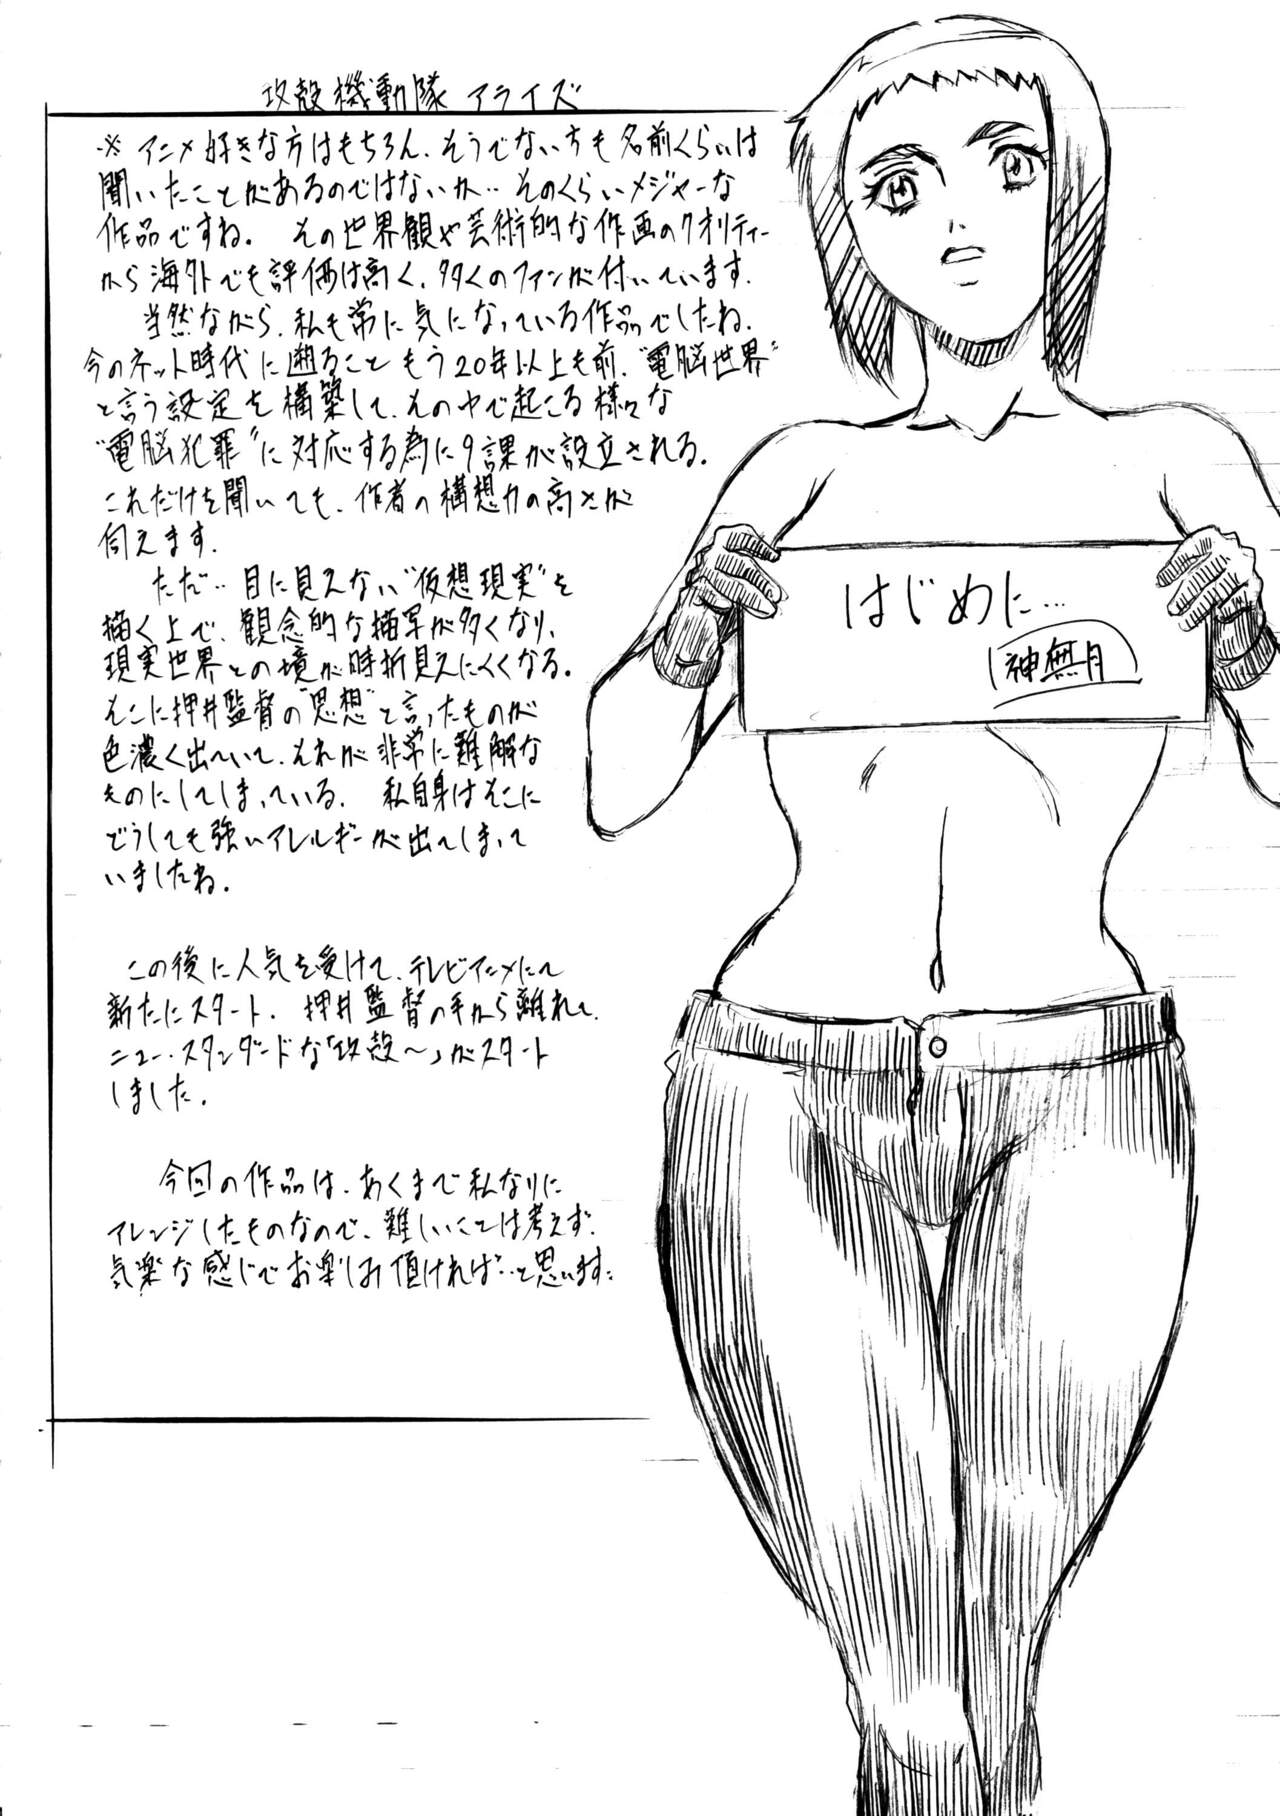 攻殻機動隊 アライズ
※ アニメ好きな方はもちろん、そうでない方も名前くらいは
聞いたことがあるのではないか‥そのくらいメジャーな
作品ですね。 その世界観や芸術的な作画のクオリティー
から海外でも評価は高く、多くのファンが付いています。
当然ながら、私も常に気になっている作品でしたね、
今のネット時代に遡ること もう20年以上も前、“電脳世界”
と言う設定を構築して、その中で起こる様々な
“電脳犯罪”に対応する為に9課が設立される。
これだけを聞いても、作者の構想力の高さが
伺えます。
ただ‥目に見えない“仮想現実”を
描く上で、観念的な描写が多くなり、
現実世界との境が時折見えにくくなる。
そこに押井監督の“思想”と言ったものが
色濃く出ていて、それが非常に難解な
ものにしてしまっている。 私自身はそこに
どうしても強いアレルギーが出てしまって
いましたね。
この後に人気を受けて、テレビアニメにて
新たにスタート、押井監督の手から離れて、
ニュー・スタンダードな「攻殻〜」がスタート
しました。
今回の作品は、あくまで私なりに
アレンジしたものなので、難しいことは考えず、
気楽な感じでお楽しみ頂ければ‥と思います。
はじめに…
神無月